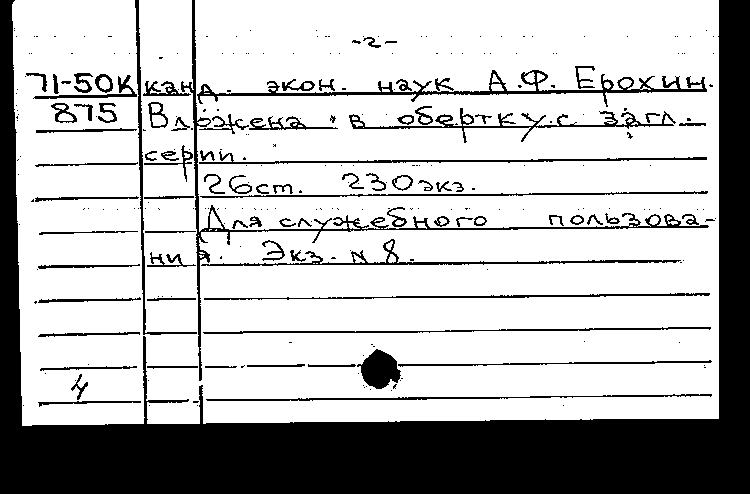 -2-
71-50К канд. экон. наук А.Ф. Ерохин.
875 Вложена в обертку с загл.
серии.
26 ст. 230 экз.
Для служебного пользова-
ния. Экз. N 8.
4